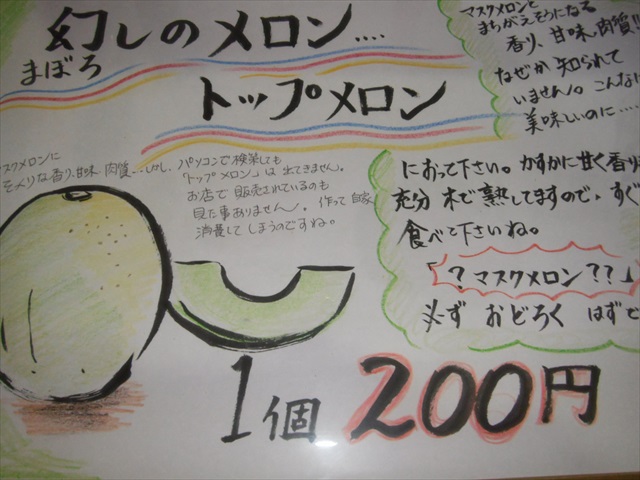 幻しのメロン....
まぼろ
トップメロン
マスクメロンと
まちがえそうになる
香り、甘味、肉質!!
なぜか 知られて
いません。こんなに
美味しいのに....
スクメロンに
そくりな香り、甘味 肉質...しかし、パソコンで検索しても
「トップメロン」は 出てきません。
お店で 販売されているのも
見た事ありません。作って 自家
消費して しまうのですね。
におって下さい。かすかに甘く香り
充分 木で熟してますので、すぐ
食べて下さいね。
「? マスクメロン??」
必ず おどろく はず
1個 200円